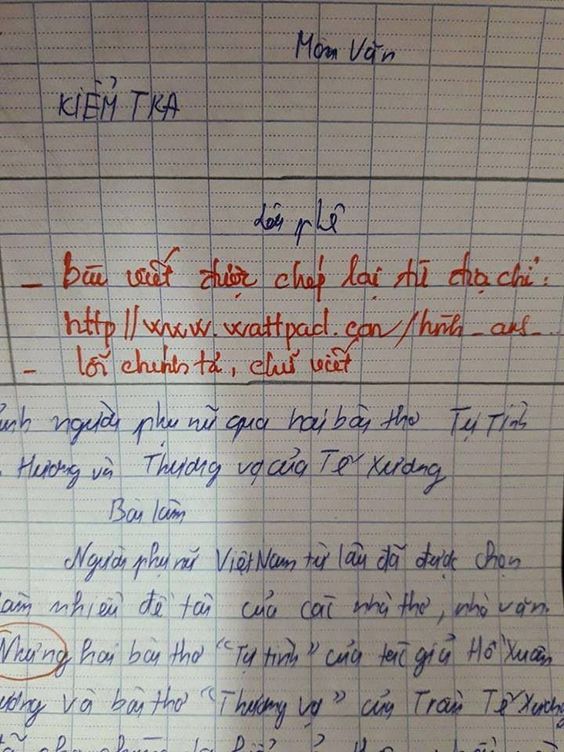 Môn Văn
KIỂM TRA
Lời phê
- bài viết được chép lại từ địa chỉ:
http//www.wattpad.com/hình_anh_..
- lỗi chính tả, chữ viết
ảnh người phụ nữ qua hai bài thơ Tự Tình
Hương và Thương vợ của Tế Xương
Bài làm
Người phụ nữ Việt Nam từ lâu đã được chọn
làm nhiều đề tài của các nhà thơ, nhà văn.
Nhưng hai bài thơ "Tự tình" của tác giả Hồ Xuân
Hương và bài thơ "Thương vợ" của Trần Tế Xương